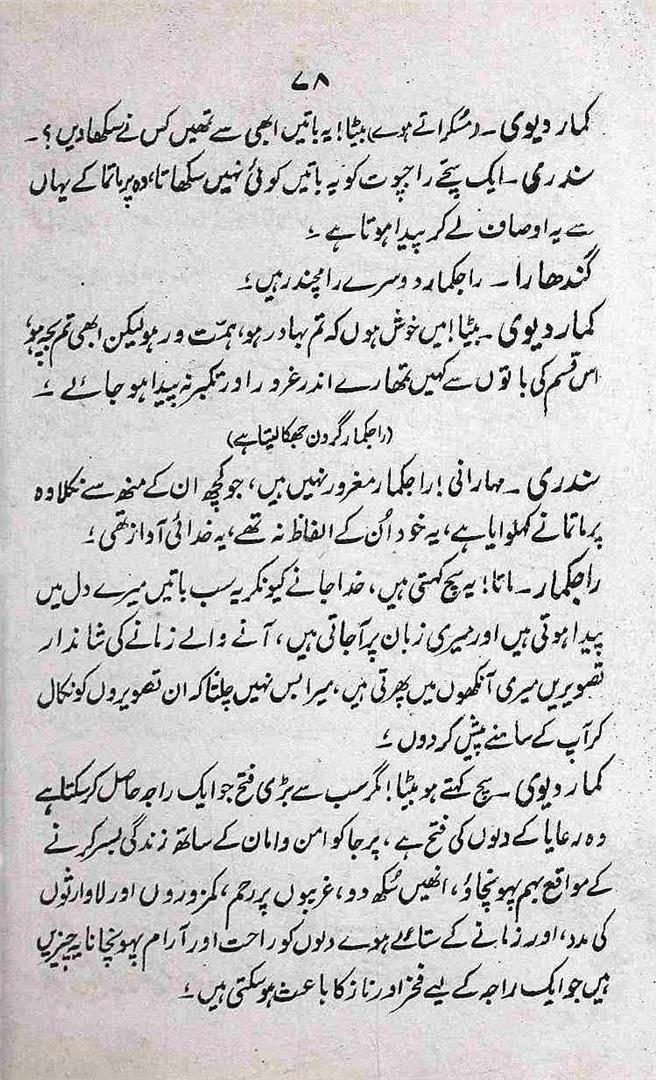 ۷۸
کمار دیوی۔ (مسکراتے ہوے) بیٹا! یہ باتیں ابھی سے تمھیں کس نے سکھا دیں؟۔
سندری۔ ایک سچّے راجپوت کو یہ باتیں کوئی نہیں سکھاتا، وہ پرماتما کے یہاں
سے یہ اوصاف لے کر پیدا ہوتا ہے ؛
گندھارا۔ راجکمار دوسرے رامچندر ہیں ؛
کمار دیوی۔ بیٹا! میں خوش ہوں کہ تم بہادر ہو، ہمّت ور ہو لیکن ابھی تم بچّہ ہو،
اس قسم کی باتوں سے کہیں تمھارے اندر غرور اور تکبر نہ پیدا ہو جائے ؛
(راجکمار گردن جھکا لیتا ہے)
سندری۔ مہارانی! راجکمار مغرور نہیں ہیں، جو کچھ ان کے منھ سے نکلا وہ
پرماتما نے کہلوایا ہے، یہ خود اُن کے الفاظ نہ تھے، یہ خدائی آواز تھی ؛
راجکمار۔ ماتا! یہ سچ کہتی ہیں، خدا جانے کیونکر یہ سب باتیں میرے دل میں
پیدا ہوتی ہیں اور میری زبان پر آجاتی ہیں، آنے والے زمانے کی شاندار
تصویریں میری آنکھوں میں پھرتی ہیں، میرا بس نہیں چلتا کہ ان تصویروں کو نکال
کر آپ کے سامنے پیش کر دوں ؛
کمار دیوی۔ سچ کہتے ہو بیٹا! مگر سب سے بڑی فتح جو ایک راجہ حاصل کر سکتا ہے
وہ رعایا کے دلوں کی فتح ہے، پرجا کو امن و امان کے ساتھ زندگی بسر کرنے
کے مواقع بہم پہونچاؤ، انھیں سُکھ دو، غریبوں پر رحم، کمزوروں اور لاوارثوں
کی مدد، اور زمانے کے ستائے ہوے دلوں کو راحت اور آرام پہونچانا یہ چیزیں
ہیں جو ایک راجہ کے لیے فخر اور ناز کا باعث ہو سکتی ہیں ؛